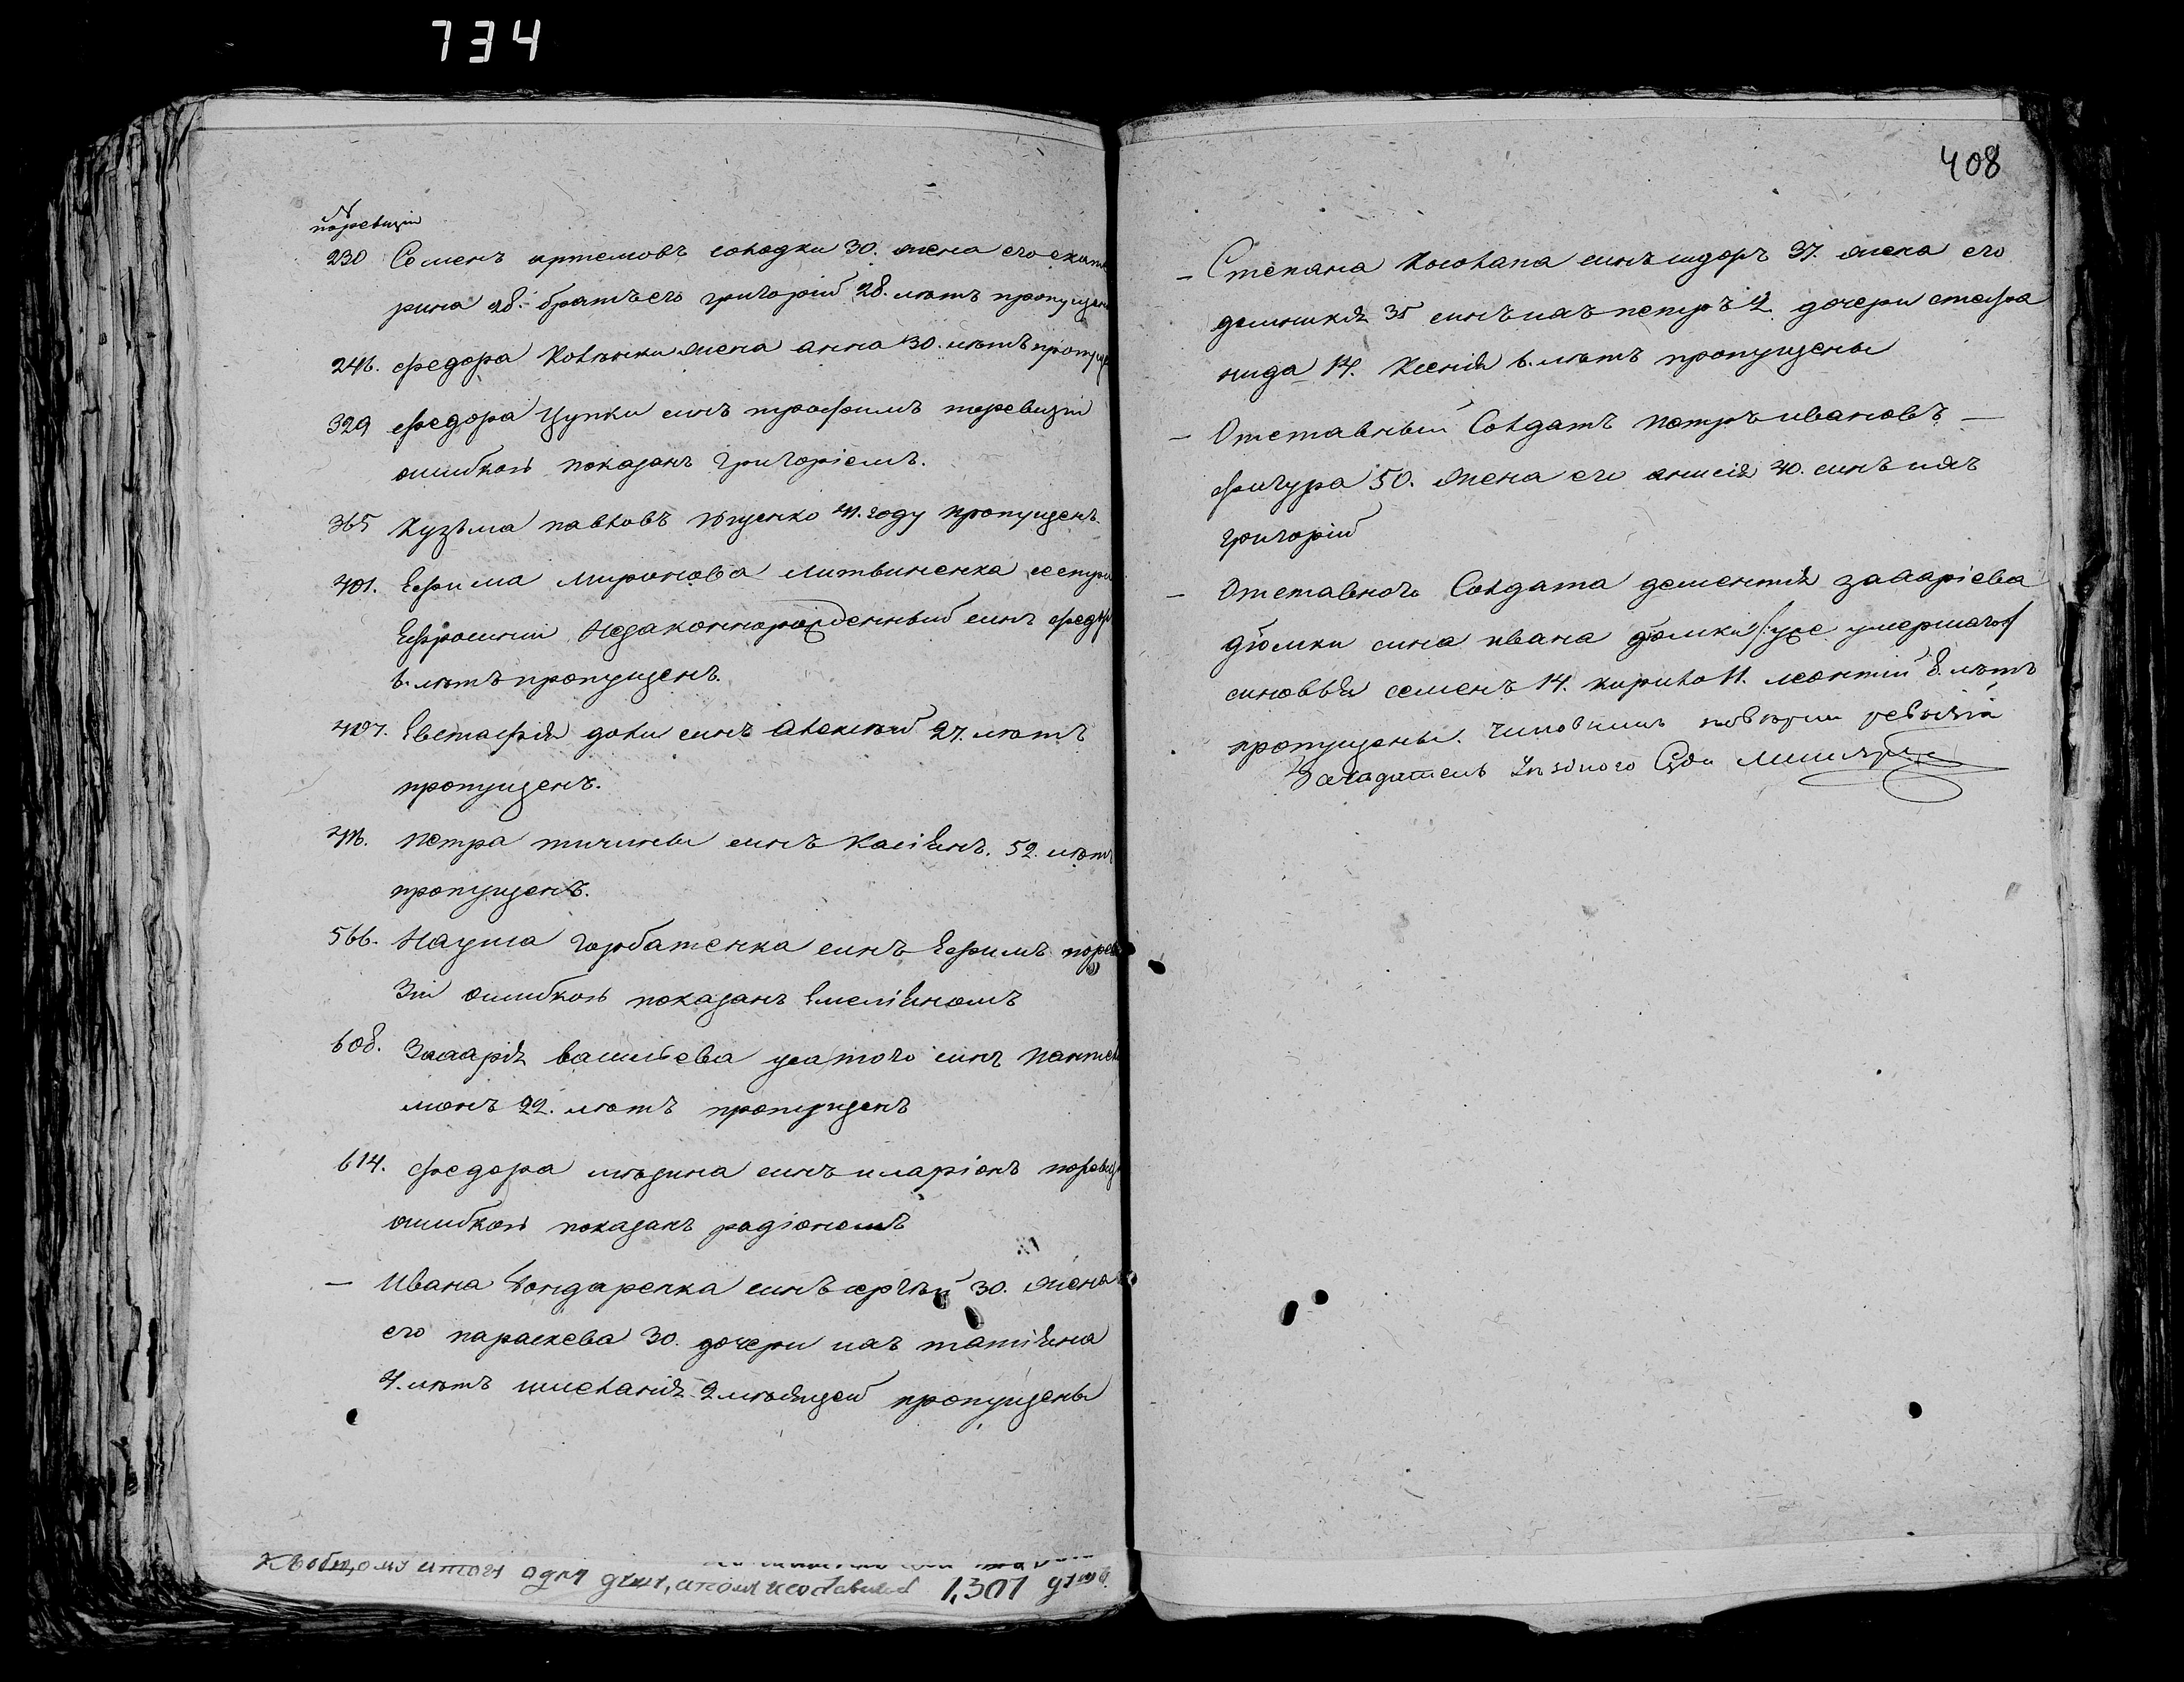 734
408
№
поревизіи
230 Семенъ артемовъ солодки 30. жена его екате
рина 28. братъ его григорій 28. лѣтъ пропущены
246. федора Ковтонки жена анна 30. лѣтъ пропуще
329 федора Цупки синъ трофимъ поревизіи
ошибкою показанъ григоріемъ.
365 Кузьма павловъ Ющенко 41. году пропущенъ.
401. Ефима миронова литвиненка сестри
Ефросиніи незаконнорожденный синъ федор
6. лѣтъ пропущенъ.
407. Евстафія доли синъ Алексѣй 27. лѣтъ
пропущенъ.
петра тичины синъ Касіянъ. 52. лѣтъ
пропущенъ.
566. Наума горбатенка синъ Ефимъ, пореви
зіи ошибкою показанъ Емеліяномъ
608. Захарія васильева усатого синъ пантелей
монъ 22. лѣтъ пропущенъ
614. федора синъ иларіонъ поревизіи
ошибкою показанъ радіономъ
— Ивана бондаренка синъ сергѣй 30. жена
его параскева 30. дочери ихъ татіяна
4. лѣтъ меланія 2 мѣсяцей пропущены
къ общому итогу одну душу, итого и составится 1,307 душъ.
— Степана Косолапа синъ сидоръ 37. жена его
домникія 35 синъ ихъ петръ 2. дочери стефа
нида 14. Ксенія 6. лѣтъ пропущены
— Отставный Солдатъ петръ ивановъ —
фигура 50. жена его анисія 40. синъ ихъ
григорій
— Отставного Солдата дементія захаріева
дюмки сина ивана дюмки /:уже умершаго:/
синовья семенъ 14. кирило 11. леонтій 8. лѣтъ
пропущены. Чиновникъ повѣрки ревизіи
Засѣдатель уѣзного Суда